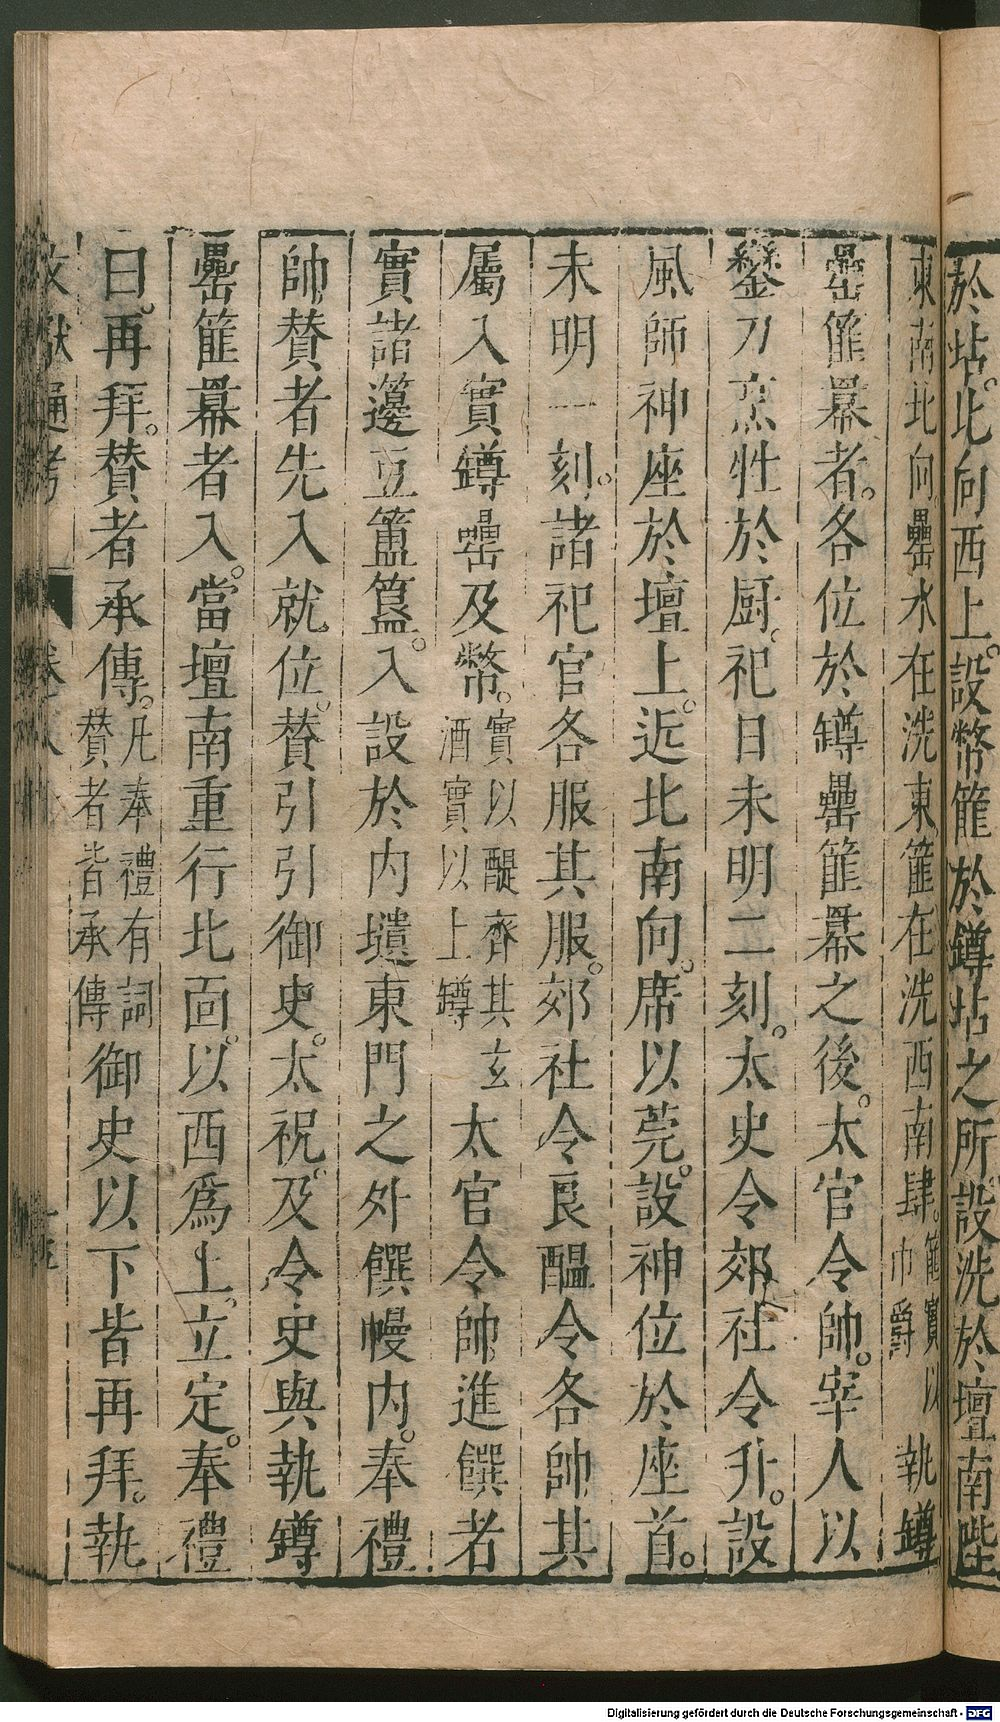 於坫。北向西上。設幣篚於罇坫之所。設洗於壇南陛
東南北向罍水在洗東篚在洗西南肆。篚實以巾爵執罇
罍篚冪者。各位於罇罍篚冪之後。太官令帥。宰人以
鑾刀烹牲於厨。祀日未明二刻。太史令郊社令升。設
風師神座於壇上。近北南向。席以莞。設神位於座首。
未明一刻。諸祀官各服其服。郊社令良醞令各帥其
屬入實罇罍及幣。實以醍齊其玄酒實以上罇太官令帥進饌者
實諸籩豆簠簋。入設於内壝東門之外饌幔内。奉禮
帥贊者先入就位。贊引引御史。太祝。及令史與執罇
罍篚冪者入。當壇南重行北面。以西爲上。立定。奉禮
曰。再拜。贊者承傳。凡奉禮有詞贊者皆承傳御史以下皆再拜。執
文獻通考 卷八
Digitalisierung gefördert durch die Deutsche Forschungsgemeinschaft - DFG